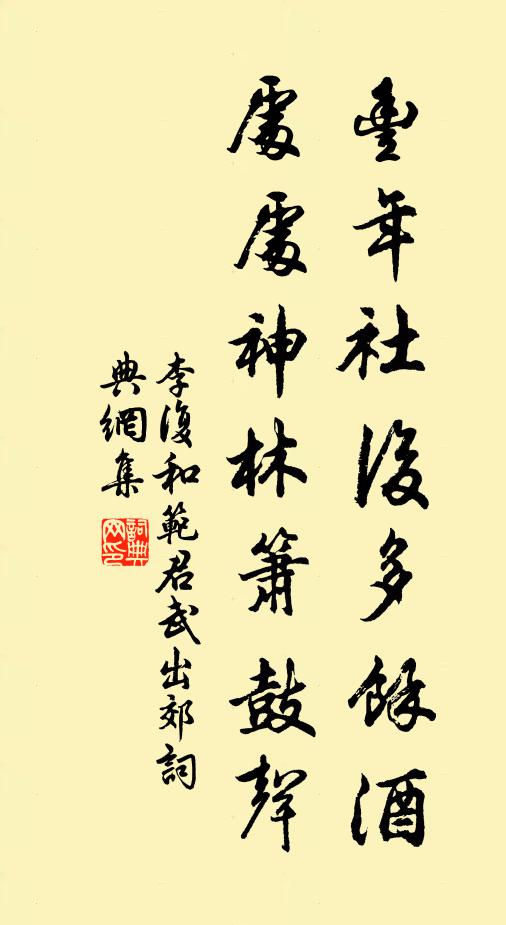 豐年社後多餘酒
處處神林簫鼓聲
李復和範君武出郊詞
典網集
詞典網印